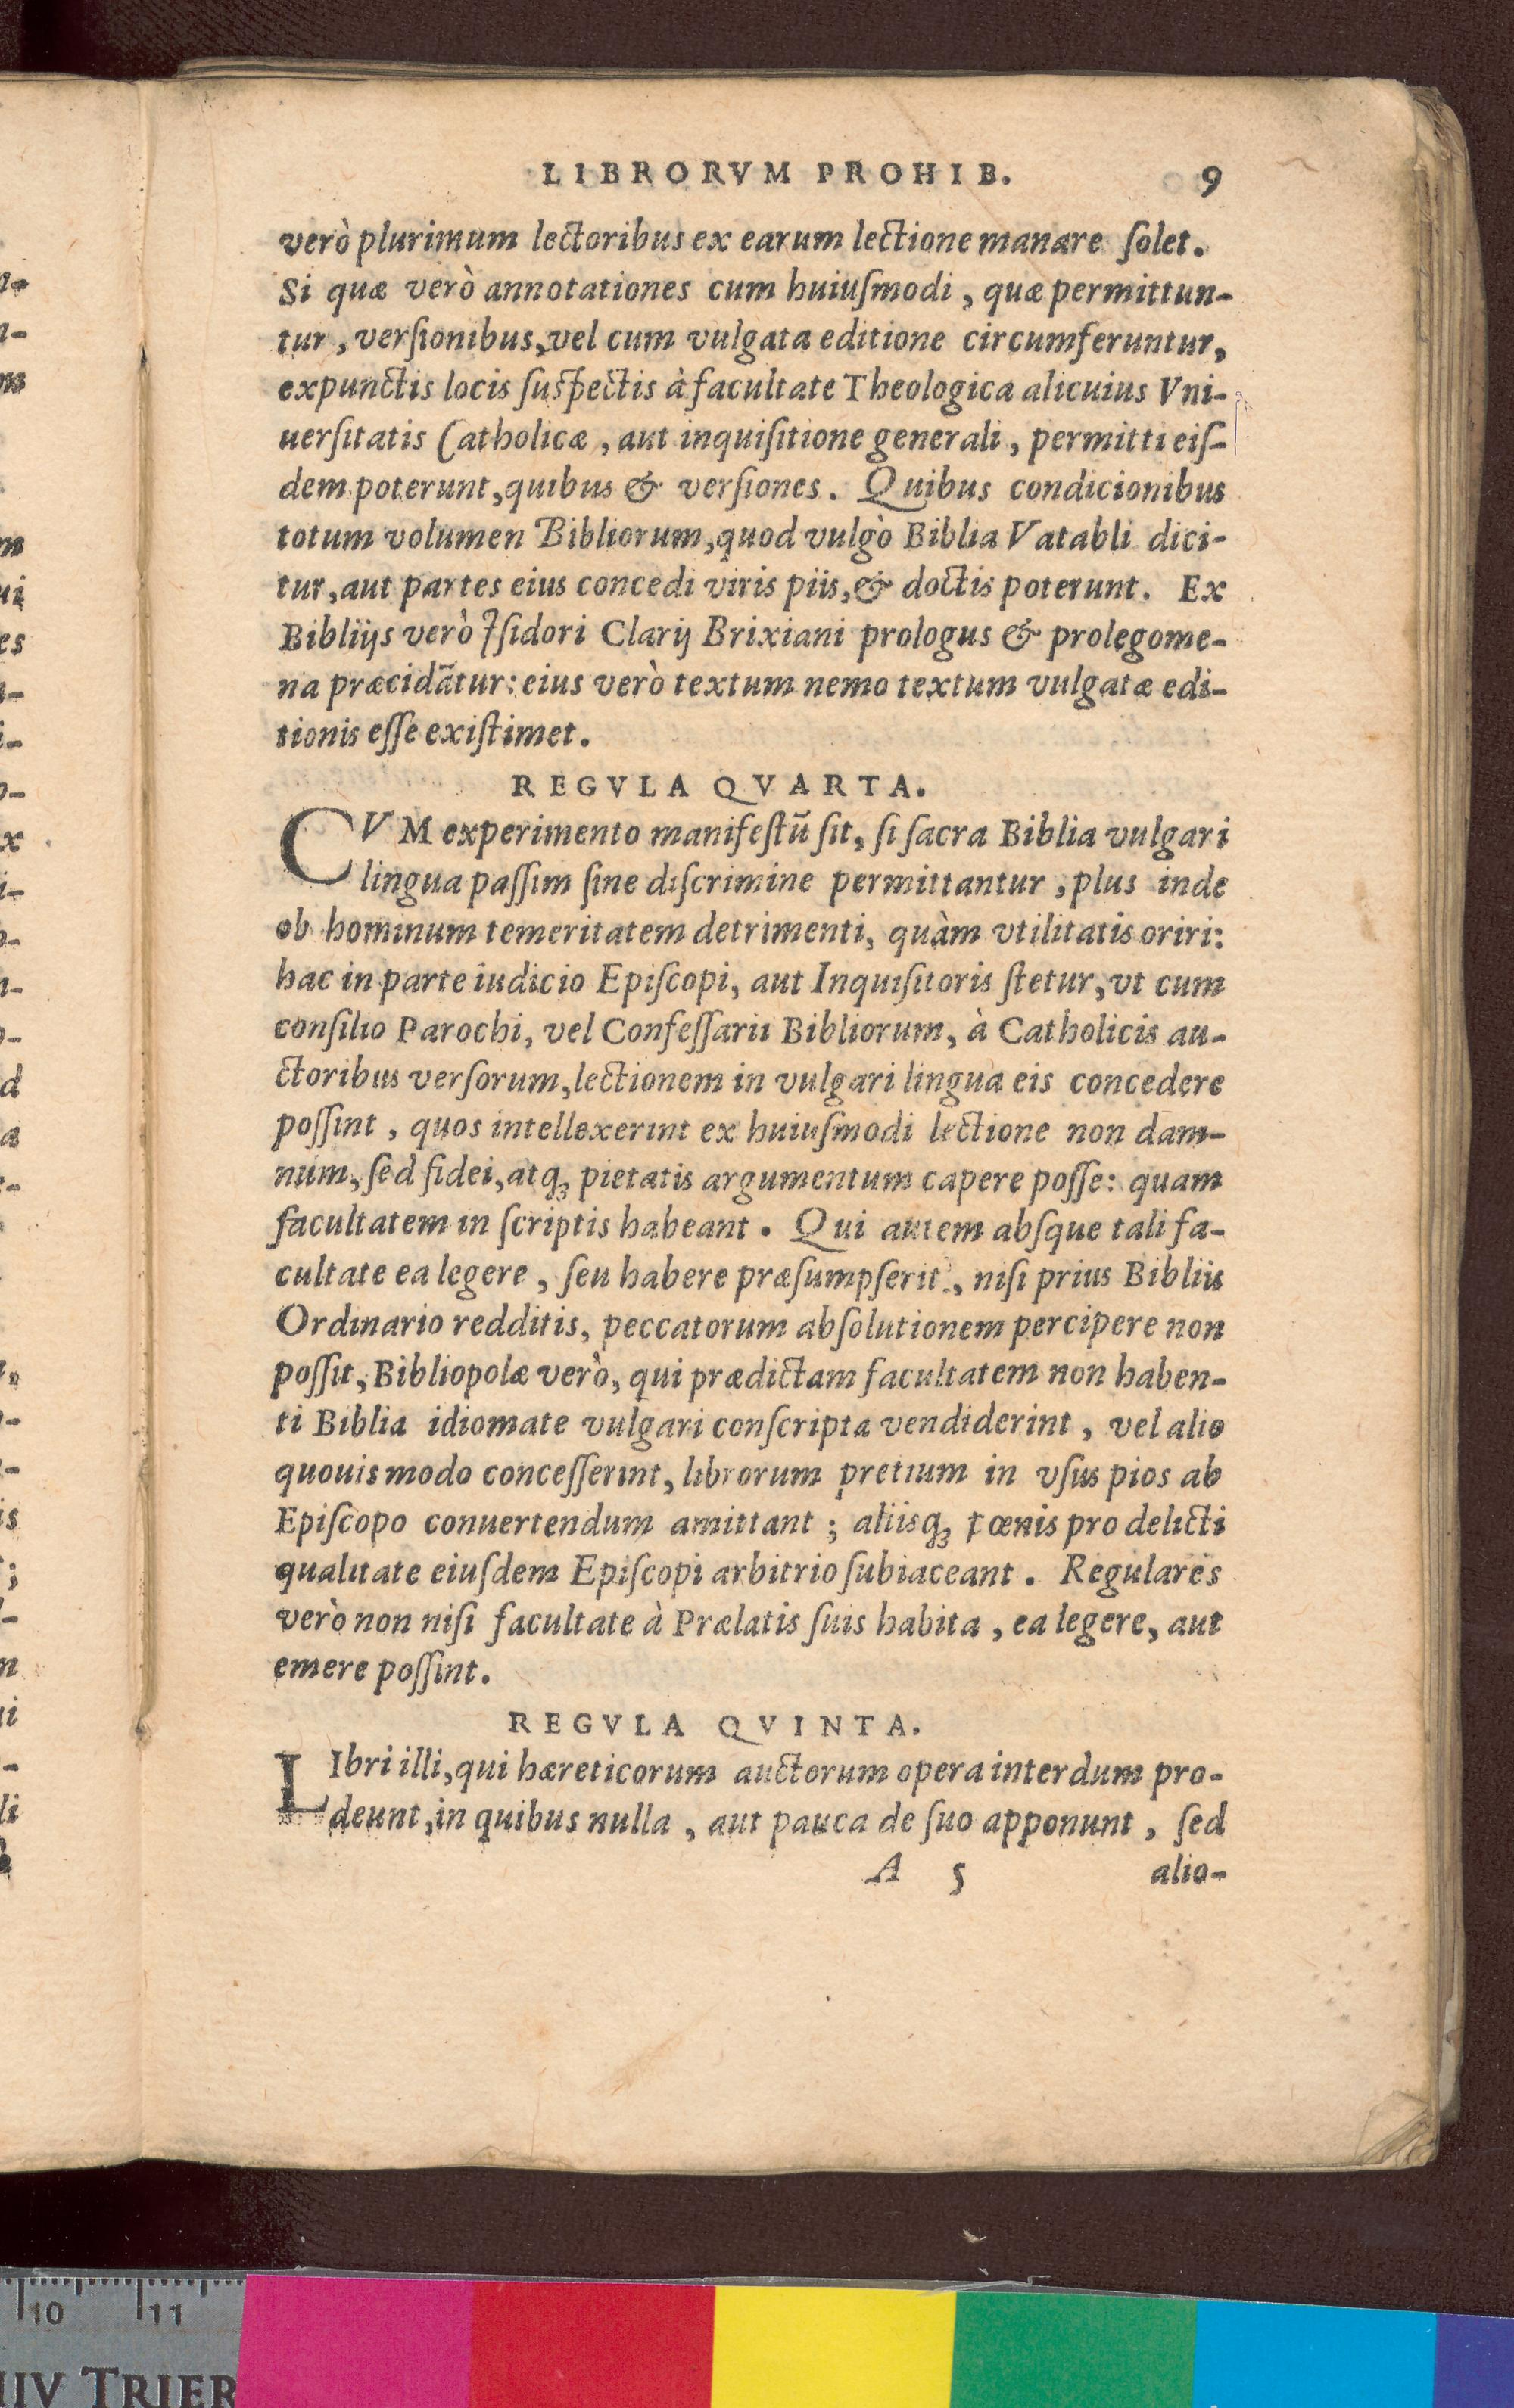 LIBRORVM PROHIB. 9
verò plurimum lectoribus ex earum lectione manare ſolet.
Si quæ verò annotationes cum huiuſmodi, quæ permittun-
tur, verſionibus, vel cum vulgata editione circumferuntur,
expunctis locis ſuſpectis à facultate Theologica alicuius Vni-
uerſitatis Catholicæ, aut inquiſitione generali, permitti eiſ-
dem poterunt, quibus & verſiones. Quibus condicionibus
totum volumen Bibliorum, quod vulgò Biblia Vatabli dici-
tur, aut partes eius concedi viris piis, & doctis poterunt. Ex
Bibliijs verò Iſidori Clarij Brixiani prologus & prolegome-
na præcidãtur: eius verò textum nemo textum vulgatæ edi-
tionis eſſe exiſtimet.
REGVLA QVARTA.
CVM experimento manifeſtũ ſit, ſi ſacra Biblia vulgari
lingua paſſim ſine diſcrimine permittantur, plus inde
ob hominum temeritatem detrimenti, quàm vtilitatis oriri:
hac in parte iudicio Epiſcopi, aut Inquiſitoris ſtetur, vt cum
conſilio Parochi, vel Confeſſarii Bibliorum, à Catholicis au-
ctoribus verſorum, lectionem in vulgari lingua eis concedere
poſſint, quos intellexerint ex huiuſmodi lectione non dam-
num, ſed fidei, atq́ʒ pietatis argumentum capere poſſe: quam
facultatem in ſcriptis habeant. Qui autem abſque tali fa-
cultate ea legere, ſeu habere præſumpſerit, niſi prius Bibliis
Ordinario redditis, peccatorum abſolutionem percipere non
poſſit, Bibliopolæ verò, qui prædictam facultatem non haben-
ti Biblia idiomate vulgari conſcripta vendiderint, vel alio
quouis modo conceſſerint, librorum pretium in vſus pios ab
Epiſcopo conuertendum amittant; aliisqʒ pœnis pro delicti
qualitate eiuſdem Epiſcopi arbitrio ſubiaceant. Regulares
verò non niſi facultate à Prælatis ſuis habita, ea legere, aut
emere poſſint.
REGVLA QVINTA.
LIbri illi, qui hæreticorum auctorum opera interdum pro-
deunt, in quibus nulla, aut pauca de ſuo apponunt, ſed
A 5 alio-
10 11
TRIER